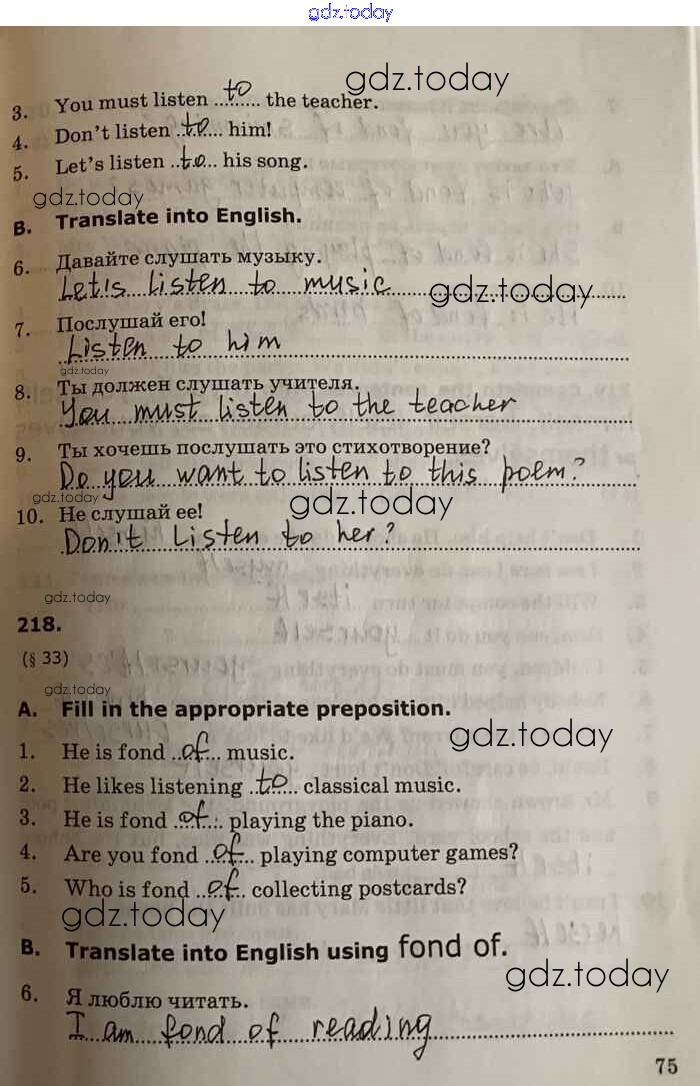 gdz.today
gdz.today
3. You must listen ..to.. the teacher.
4. Don't listen ..to.. him!
5. Let's listen ..to.. his song.
gdz.today
B. Translate into English.
6. Давайте слушать музыку.
Let's listen to music
gdz.today
7. Послушай его!
Listen to him
gdz.today
8. Ты должен слушать учителя.
You must listen to the teacher
9. Ты хочешь послушать это стихотворение?
Do you want to listen to this poem?
gdz.today
gdz.today
10. Не слушай ее!
Don't listen to her?
gdz.today
218.
(§ 33)
gdz.today
A. Fill in the appropriate preposition.
gdz.today
1. He is fond ..of.. music.
2. He likes listening ..to.. classical music.
3. He is fond ..of.. playing the piano.
4. Are you fond ..of.. playing computer games?
5. Who is fond ..of.. collecting postcards?
gdz.today
B. Translate into English using fond of.
gdz.today
6. Я люблю читать.
I am fond of reading
75